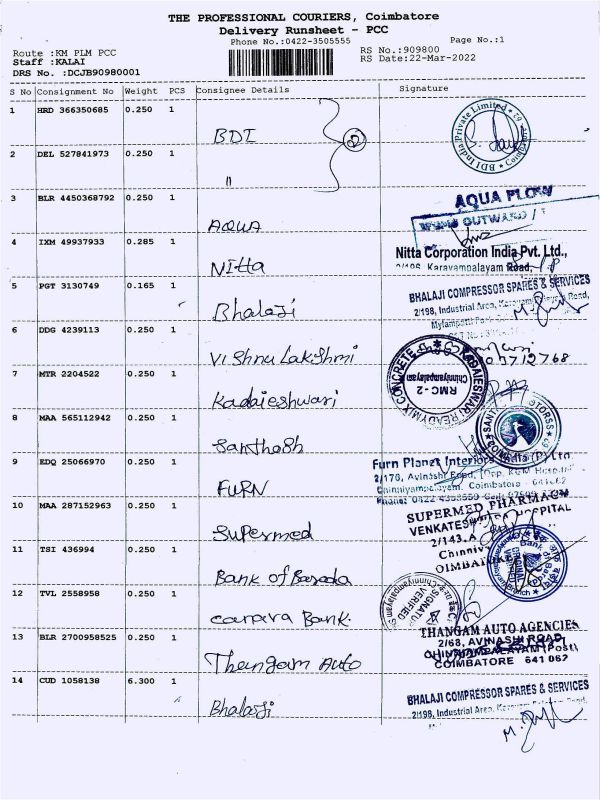 THE PROFESSIONAL COURIERS, Coimbatore
Delivery Runsheet - PCC
Phone No.:0422-3505555 Page No.:1
Route :KM PLM PCC RS No.:909800
Staff :KALAI RS Date:22-Mar-2022
DRS No. :DCJB90980001
S No Consignment No Weight PCS Consignee Details Signature
1 HRD 366350685 0.250 1
BDI 2
BDI India Private Limited
2 DEL 527841973 0.250 1
"
3 BLR 4450368792 0.250 1
AQUA
AQUA FLOW
OUTWARD
4 IXM 49937933 0.285 1
Nitta
Nitta Corporation India Pvt. Ltd.,
Karavampalayam Road,
5 PGT 3130749 0.165 1
Bhalaji
BHALAJI COMPRESSOR SPARES & SERVICES
2/198, Industrial Area,
6 DDG 4239113 0.250 1
Vishnu Lakshmi
7 MTR 2204522 0.250 1
Kadaieshwari
KADAIESWARI READYMIX CONCRETE
RMC-2
Chinniyampalayam
8 MAA 565112942 0.250 1
Santhosh
9 EDQ 25066970 0.250 1
FURN
Furn Planet Interiors India (P) Ltd.
2/170, Avinashi Road,
Chinniyampalayam, Coimbatore - 641062
10 MAA 287152963 0.250 1
Supermed
SUPERMED PHARMACY
HOSPITAL
2/143.A
11 TSI 436994 0.250 1
Bank of Baroda
Bank of
12 TVL 2558958 0.250 1
canara Bank.
VERIFIED
13 BLR 2700958525 0.250 1
Thangam Auto
THANGAM AUTO AGENCIES
2/68, AVINASHI ROAD,
CHINNIYAMPALAYAM (Post)
COIMBATORE 641 062
14 CUD 1058138 6.300 1
Bhalaji
BHALAJI COMPRESSOR SPARES & SERVICES
2/198, Industrial Area,